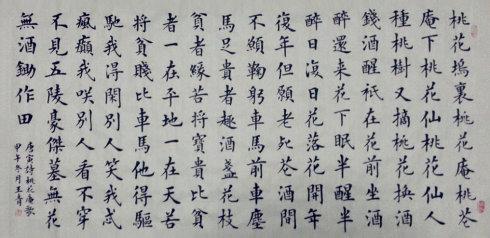 桃花塢裏桃花庵桃花
庵下桃花仙桃花仙人
種桃樹又摘桃花換酒
錢酒醒祇在花前坐酒
醉還来花下眠半醒半
醉日復日花落花開年
復年但願老死花酒間
不願鞠躬車馬前車塵
馬足貴者趣酒盞花枝
貧者緣若將富貴比貧
者一在平地一在天若
將貧賤比車馬他得驅
馳我得閑別人笑我忒
瘋癲我咲別人看不穿
不見五陵豪傑墓無花
無酒鋤作田
唐寅詩桃花庵歌
甲午冬月王青